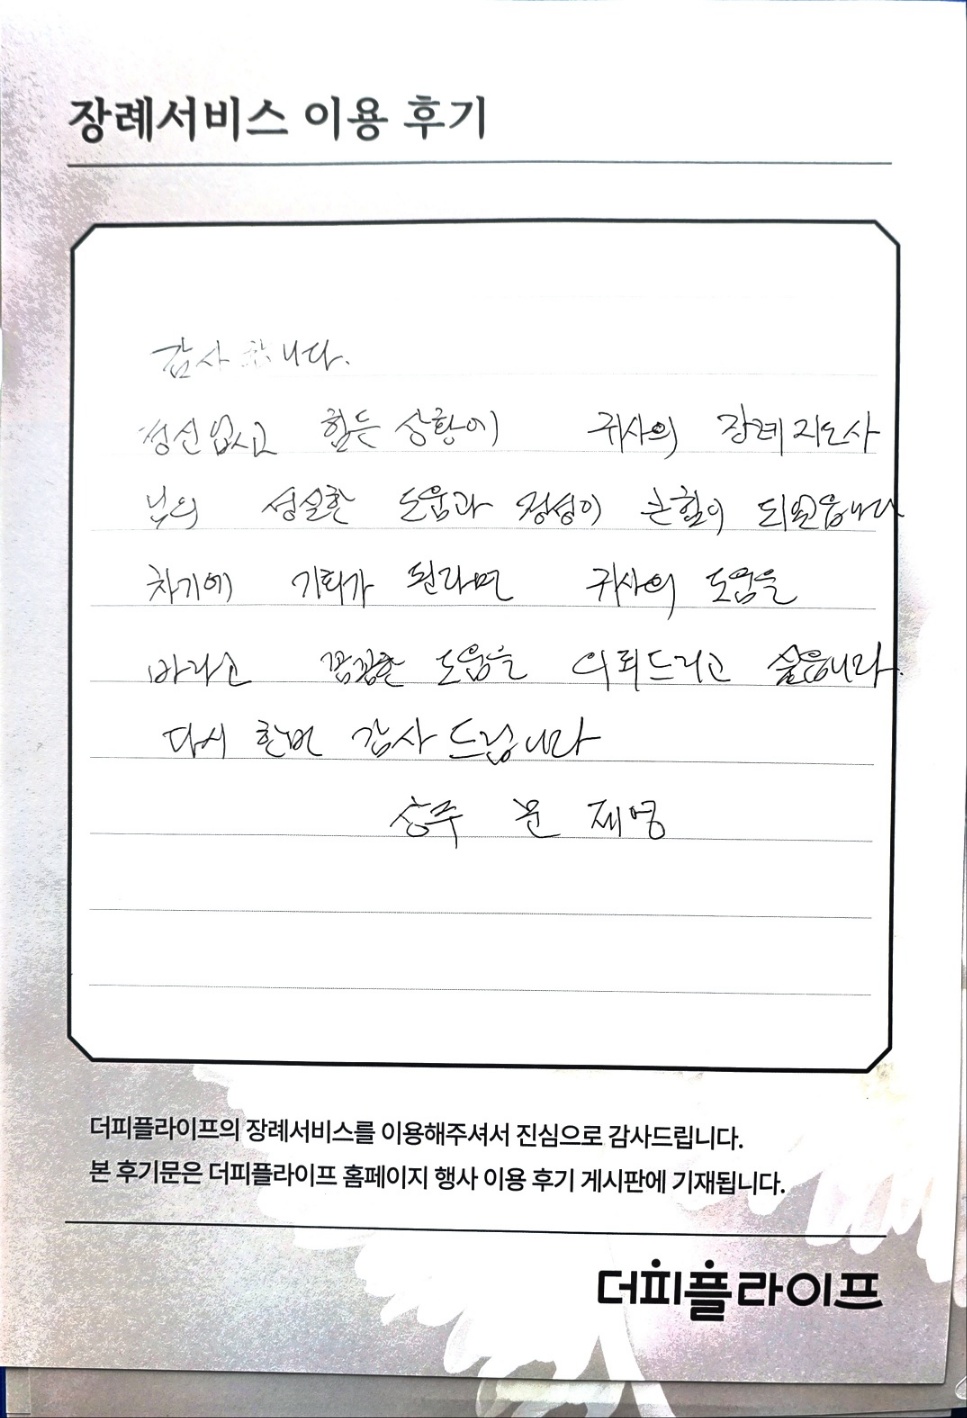 장례서비스 이용 후기
감사합니다.
정신없고 힘든 상황이 귀사의 장례지도사
님의 성실한 도움과 정성이 큰힘이 되었읍니다
차기에 기회가 된라면 귀사의 도움을
바라고 꼼꼼한 도움을 의뢰드리고 싶읍니다.
다시 한번 감사 드립니다
상주 문 제영
더피플라이프의 장례서비스를 이용해주셔서 진심으로 감사드립니다.
본 후기문은 더피플라이프 홈페이지 행사 이용 후기 게시판에 기재됩니다.
더피플라이프